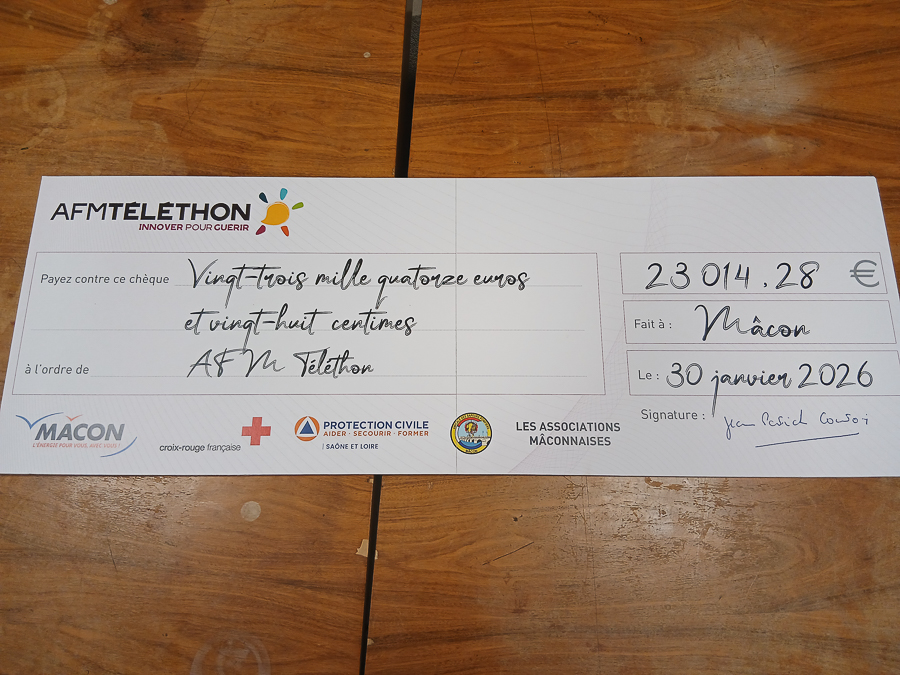 AFMTÉLÉTHON
INNOVER POUR GUÉRIR
Payez contre ce chèque Vingt-trois mille quatorze euros
et vingt-huit centimes
à l'ordre de AFM Téléthon
23 014.28 €
Fait à : Mâcon
Le : 30 janvier 2026
Signature : Jean Patrick
MÂCON
L'ÉNERGIE POUR VOUS, AVEC VOUS !
croix-rouge française
PROTECTION CIVILE
AIDER - SECOURIR - FORMER
SAÔNE ET LOIRE
LES ASSOCIATIONS
MÂCONNAISES